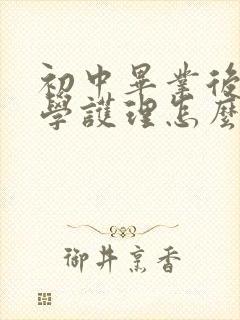 初中畢業後
學護理怎麼
御井烹香